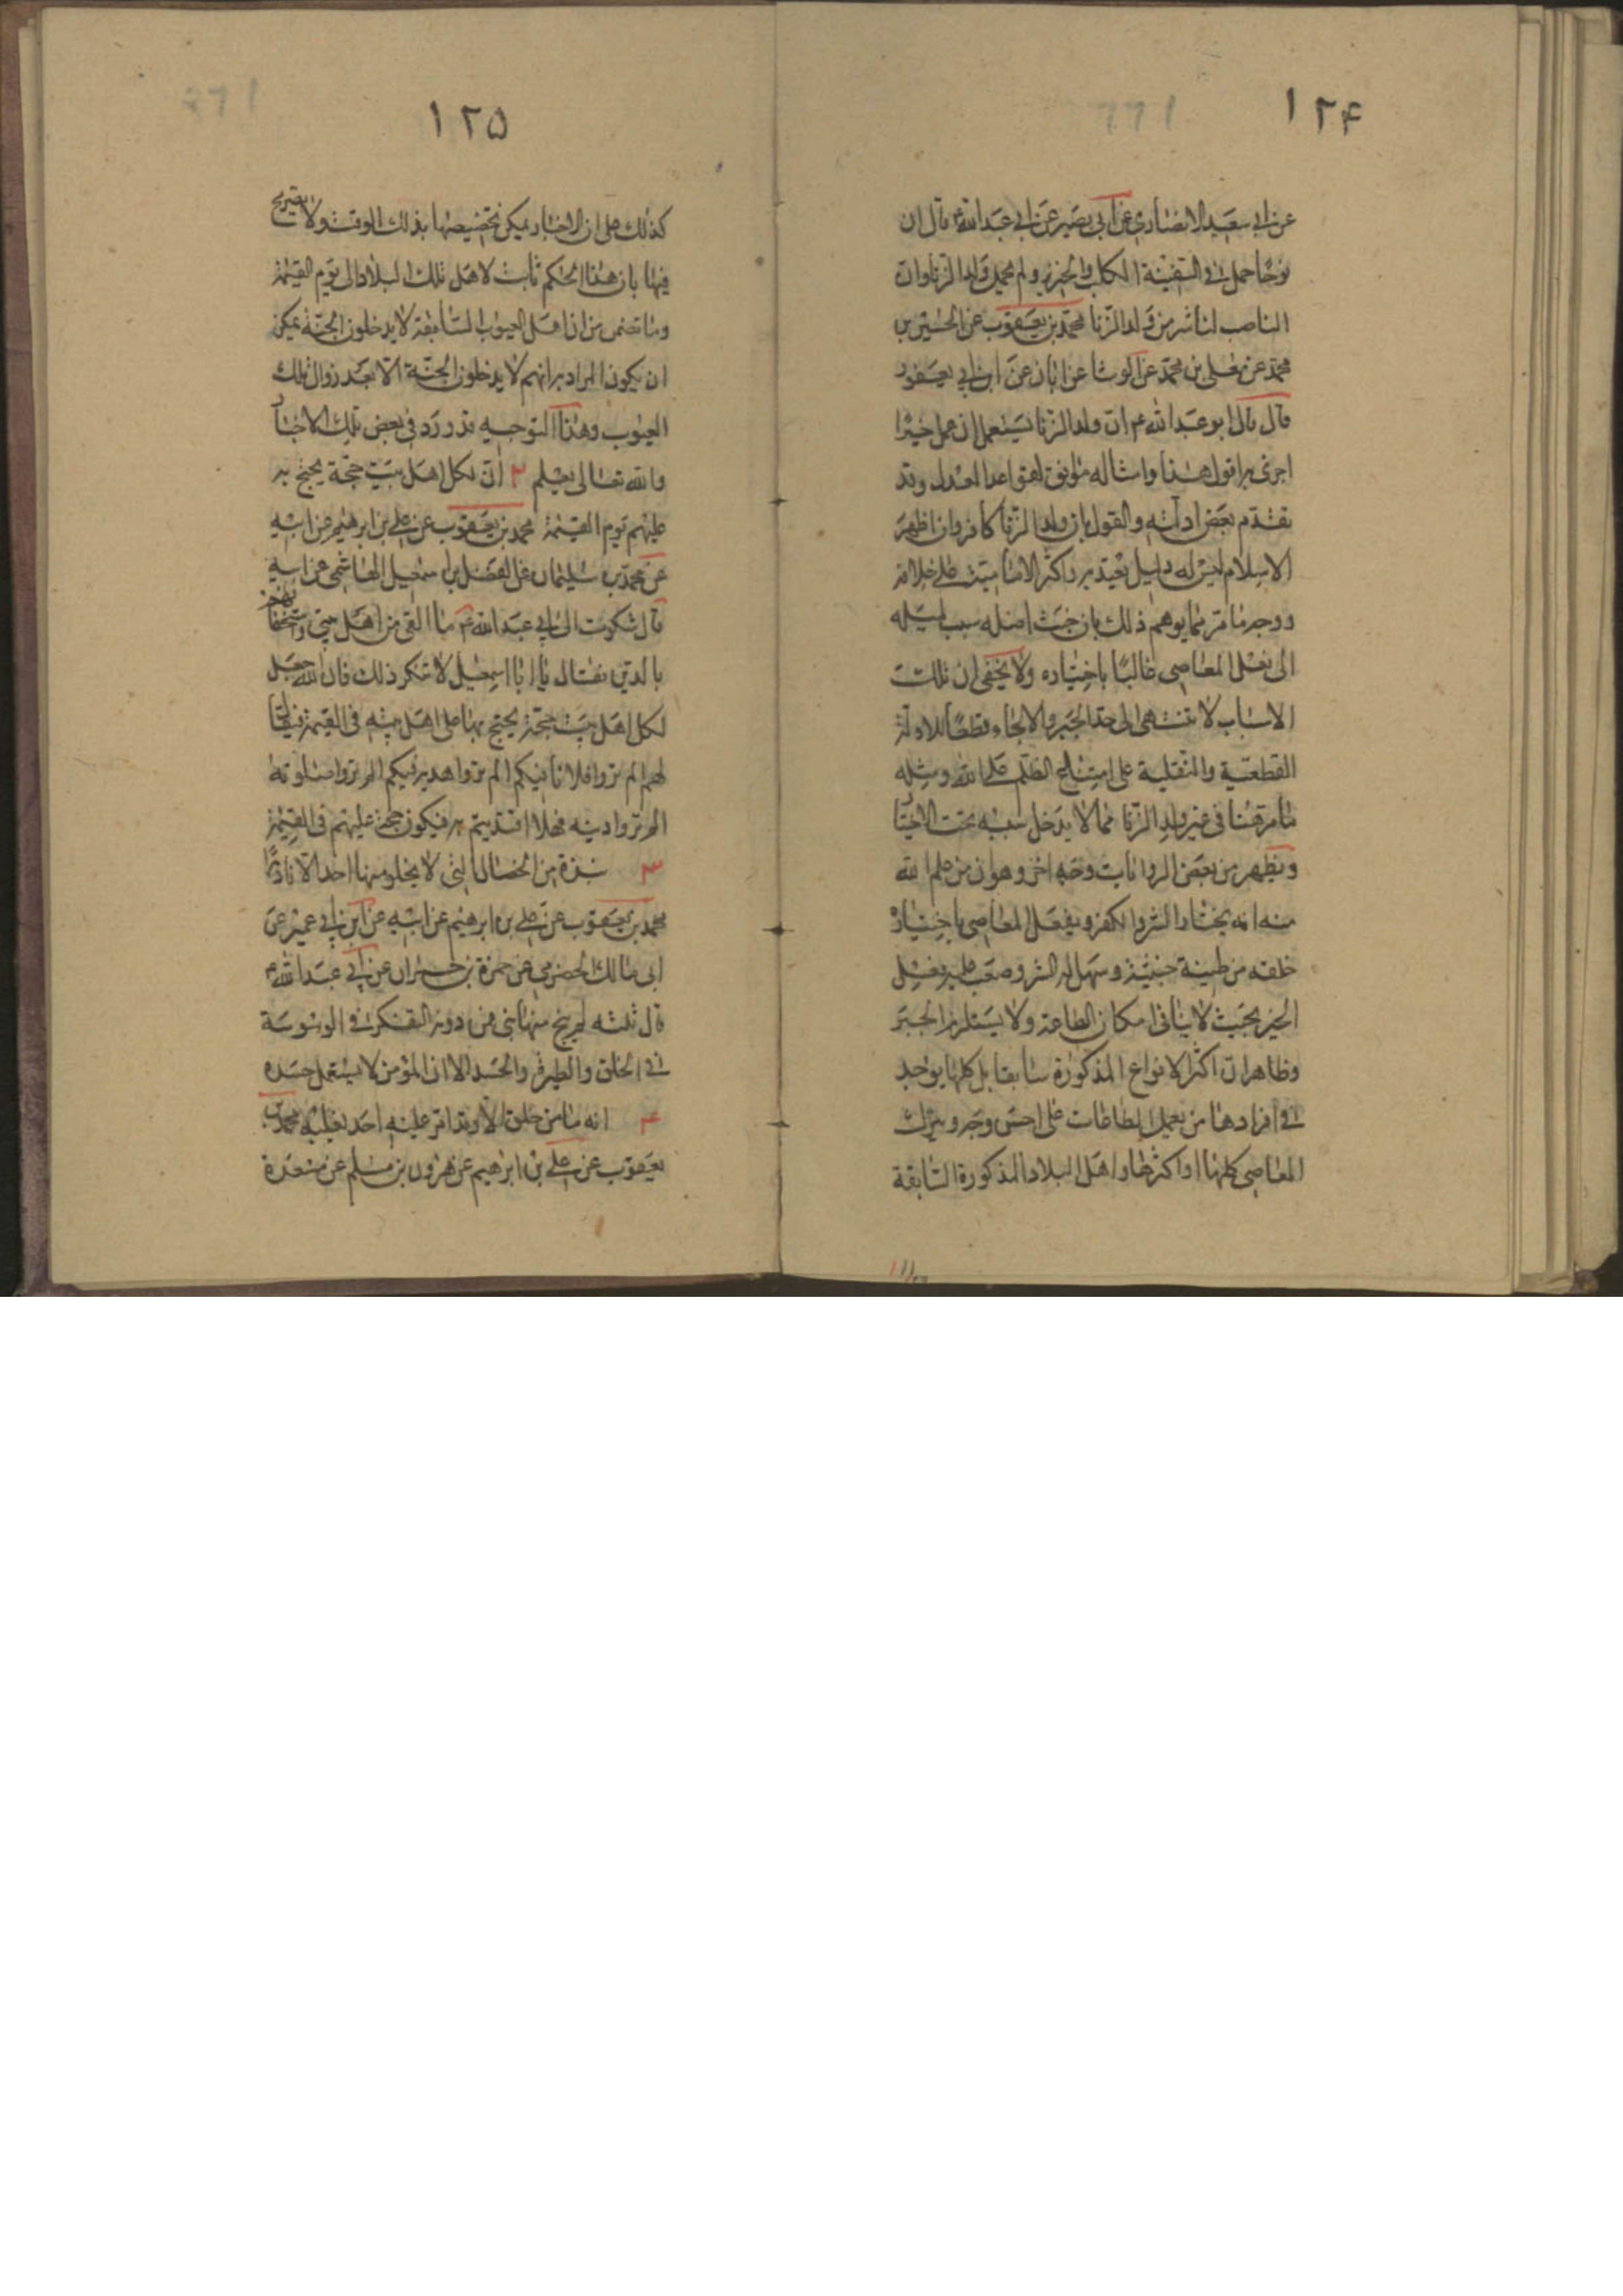 ١٢۴
عن ابي سعيد الانصاري عن ابي بصير عن ابي عبد الله ع قال ان
نوحا حمل في السفينة الكلب والخنزير ولم يحمل ولد الزنا وان
الناصب لنا شر من ولد الزنا محمد بن يعقوب عن الحسين بن
محمد عن معلى بن محمد عن الوشا عن ابان عن ابن ابي يعفور
قال قال ابو عبد الله ع ان ولد الزنا يستعمل ان عمل خيرا
اجزئ به اقول هذا وامثاله موافق لقواعد العدل وقد
تقدم بعض ادلته والقول بان ولد الزنا كافر وان اظهر
الاسلام ليس له دليل يعتد به واكثر الامامية على خلافه
ووجه ما مر مما يوهم ذلك بان خبث اصله سبب لميله
الى فعل المعاصي غالبا باختياره ولا يخفى ان تلك
الاسباب لا تنتهى الى حد الجبر والالجاء قطعا للادلة
القطعية والنقلية على امتناع الظلم على الله ومثله
ما مر قبنا في غير ولد الزنا مما لا يدخل سببه تحت الاختيار
ويظهر من بعض الروايات وجه اخر وهو ان من علم الله
منه انه يختار الشر والكفر ويفعل المعاصي باختياره
خلقه من طينة خبيثة وسهل له الشر وصعب عليه فعل
الخير بحيث لا ينافى امكان الطاعة ولا يستلزم الجبر
وظاهر ان اكثر الانواع المذكورة سابقا بل كلها يوجد
في افرادها من يعمل الطاعات على احسن وجه ويترك
المعاصي كلها او اكثرها واهل البلاد المذكورة السابقة
١٢۵
كذلك على ان الاخبار يمكن تخصيصها بذلك الوقت ولا تصريح
فيها بان هذا الحكم ثابت لاهل تلك البلاد الى يوم القيمة
وما تضمن من ان اهل العيوب السابقة لا يدخلون الجنة يمكن
ان يكون المراد به انهم لا يدخلون الجنة الا بعد زوال تلك
العيوب وهذا التوجيه قد ورد في بعض تلك الاخبار
والله تعالى يعلم ٢ ان لكل اهل بيت حجة يحتج به
عليهم يوم القيمة محمد بن يعقوب عن علي بن ابرهيم عن ابيه
عن محمد بن سليمان عن الفضل بن اسمعيل الهاشمي عن ابيه
قال شكوت الى ابي عبد الله ع ما القى من اهل بيتي واستخفافهم
بالدين فقال يا ابا اسمعيل لا تنكر ذلك فان الله جعل
لكل اهل بيت حجة يحتج بها على اهل بيته في القيمة فيقال
لهم الم تروا فلانا فيكم الم تروا هديه فيكم الم تروا صلوته
الم تروا دينه فهلا اقتديتم به فيكون حجة عليهم في القيمة
٣ نبذة من الخصال التى لا يخلو منها احد الا نادرا
محمد بن يعقوب عن علي بن ابرهيم عن ابيه عن ابن ابي عمير عن
ابى مالك الحضرمي عن حمزة بن حمران عن ابي عبد الله ع
قال ثلثه لم ينج منها نبى فمن دونه التفكر في الوسوسة
في الخلق والطيرة والحسد الا ان المؤمن لا يستعمل حسده
۴ انه ما من خلق الا وقد امر عليه احد يغلبه محمد بن
يعقوب عن علي بن ابرهيم عن هرون بن مسلم عن مسعدة